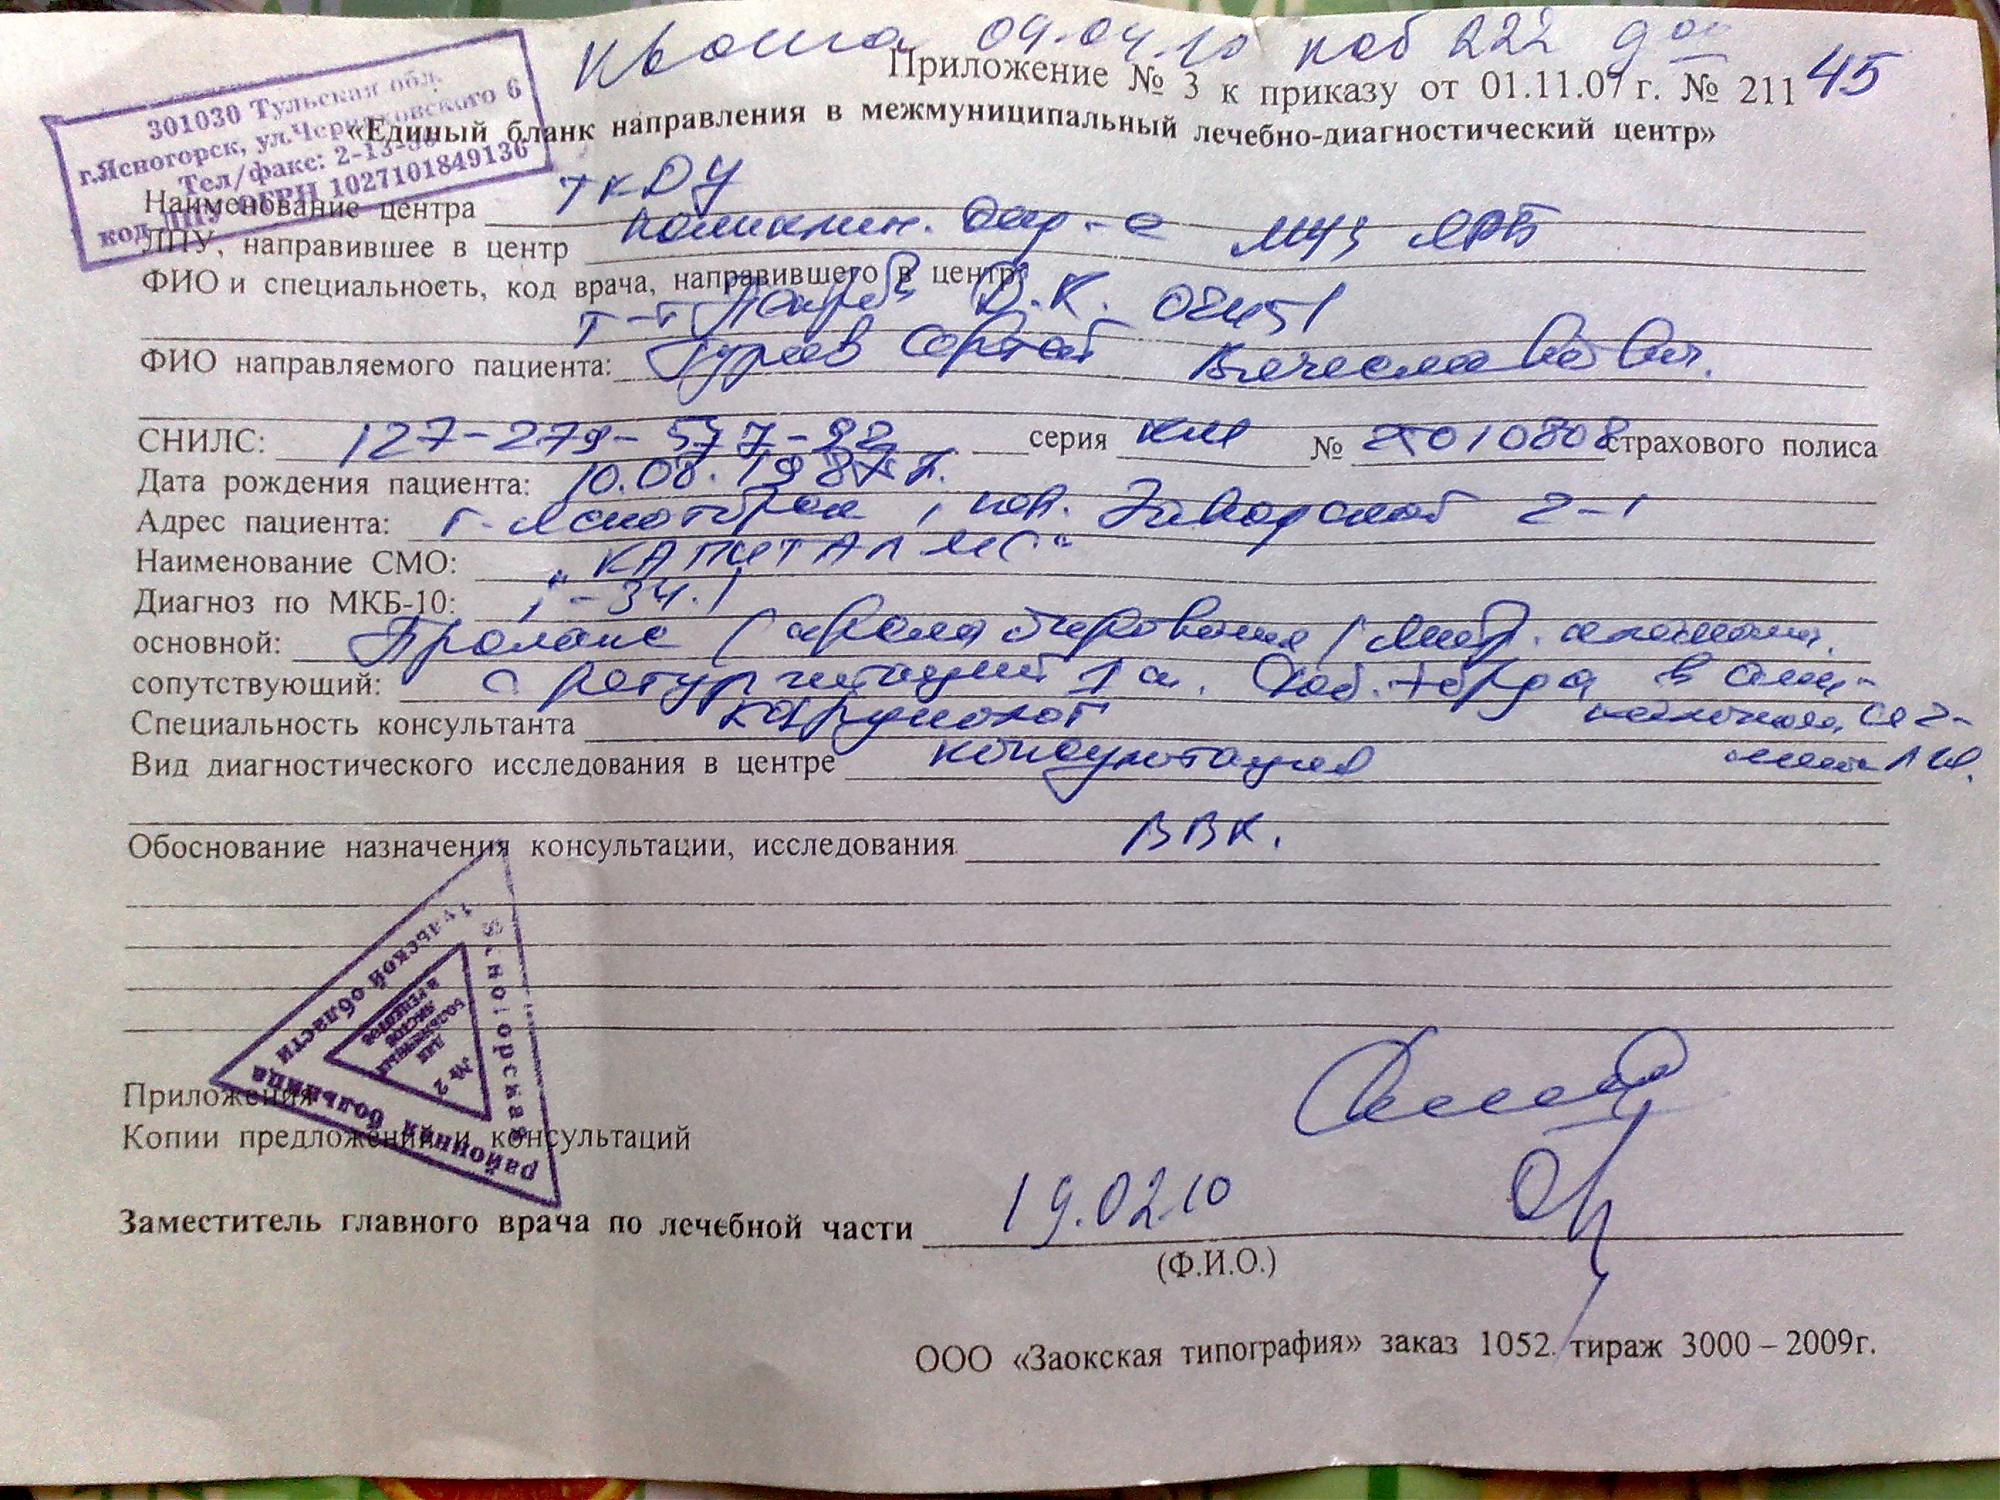 09.04.10 каб 222 9 00
45
Приложение № 3 к приказу от 01.11.07 г. № 211
«Единый бланк направления в межмуниципальный лечебно-диагностический центр»
301030 Тульская обл.
г.Ясногорск, ул.Черняховского 6
Тел/факс: 2-13-
код ЛПУ ОГРН 1027101849136
Наименование центра ТКДЦ
ЛПУ, направившее в центр поликлин. МУЗ ЯРБ
ФИО и специальность, код врача, направившего в центр:
т-т О.К. 02451
ФИО направляемого пациента: Сергей Вячеславович.
СНИЛС: 127-279-577-92 серия км № 25010808 страхового полиса
Дата рождения пациента: 10.08.1987г.
Адрес пациента: г. Ясногорск, пер. Заводской 2-1
Наименование СМО: „КАПИТАЛ МС"
Диагноз по МКБ-10: I-34.1
основной: Пролапс (пролабирование) митр. клапана.
сопутствующий: с регургитацией 1 ст. Доб. хорда в
Специальность консультанта кардиолог
Вид диагностического исследования в центре консультация
Обоснование назначения консультации, исследования ВВК.
Ясногорская
районная больница
Тульской области
№ 2
для
больничных
листов
и рецептов
Приложения
Копии предложений и консультаций
Заместитель главного врача по лечебной части 19.02.10
(Ф.И.О.)
ООО «Заокская типография» заказ 1052. тираж 3000 – 2009г.